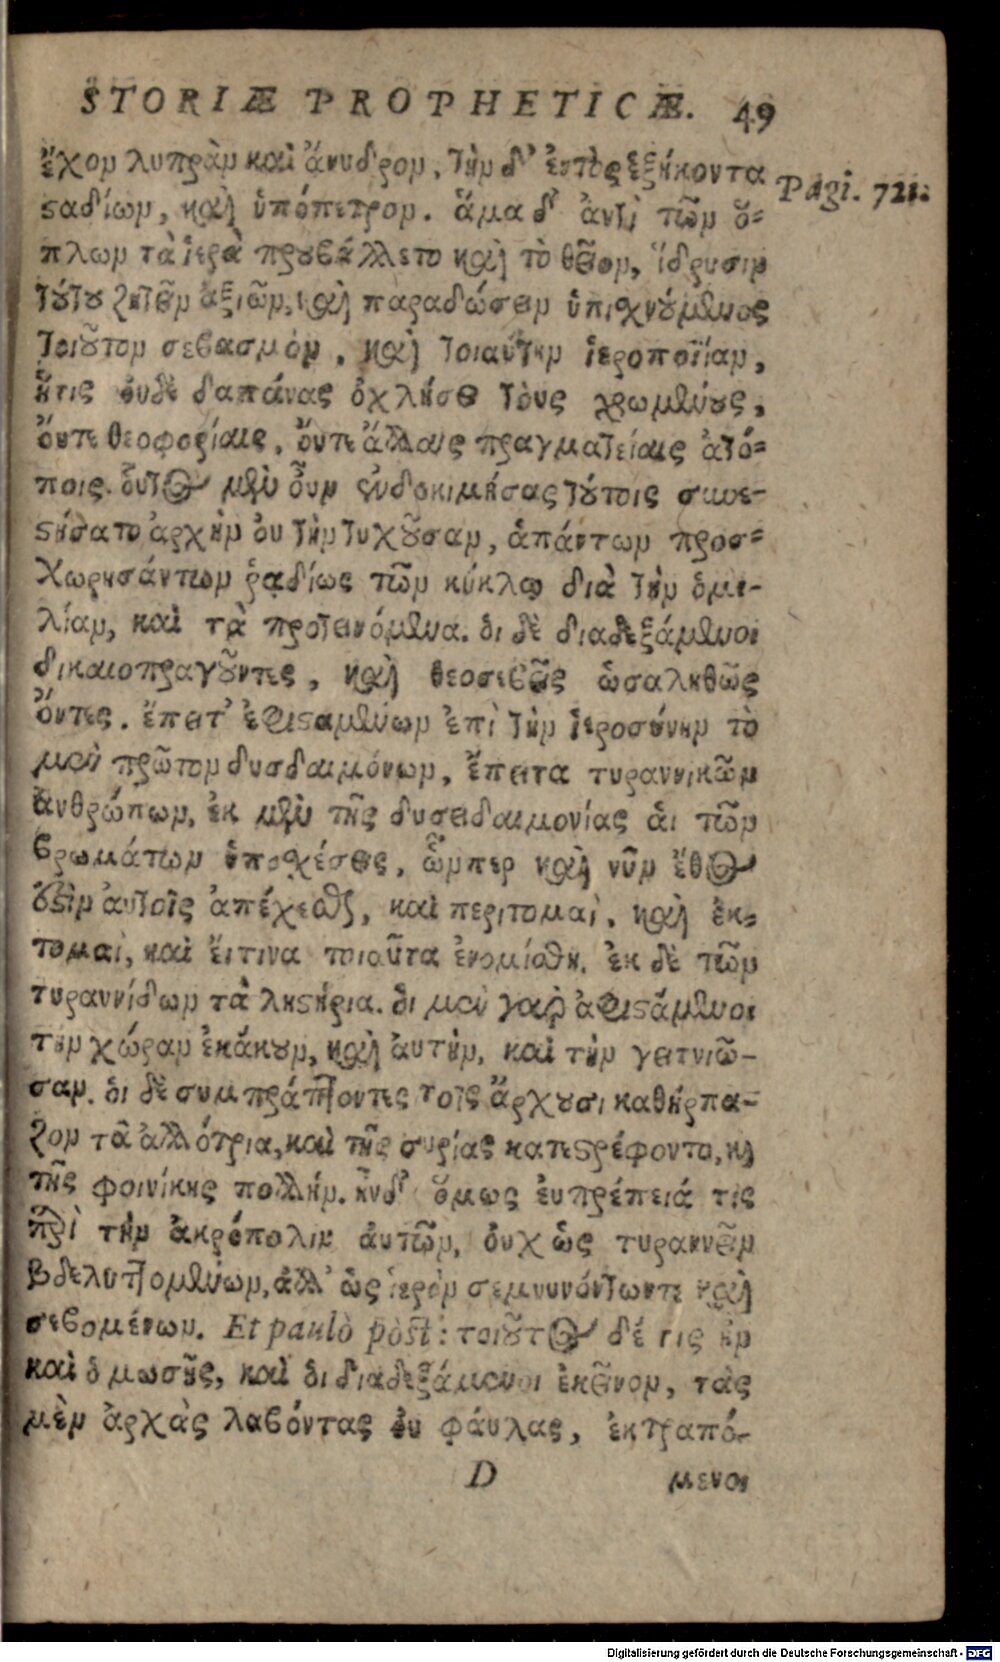 STORIÆ PROPHETICÆ. 49
ἔχον λυπρὰν καὶ ἄνυδρον, τὴν δ' ἐντὸς ἑξήκοντα
Pagi. 721.
ςαδίων, καὶ ὑπόπετρον. ἅμα δ' ἀντὶ τῶν ὅ-
πλων τὰ ἱερὰ προυβάλλετο καὶ τὸ θεῖον, ἵδρυσιν
τούτου ζητεῖν ἀξιῶν, καὶ παραδώσειν ὑπιχνούμενος
τοιοῦτον σεβασμὸν, καὶ τοιαύτην ἱεροποιΐαν,
ἥτις ὀυδὲ δαπάνας ὀχλήσει τοὺς χρωμένους,
ὄυτε θεοφορίαις, ὄυτε ἄλλαις πραγματείαις ἀτό-
ποις. ὅυτος μὲν ὖν ἐυδοκιμήσας τούτοις συνε-
ςήσατο ἀρχὴν ὀυ τὴν τυχοῦσαν, ἁπάντων προσ-
χωρησάντων ῥαδίως τῶν κύκλῳ διὰ τὴν ὁμι-
λίαν, καὶ τὰ προτεινόμενα. ὁι δὲ διαδεξάμενοι
δικαιοπραγοῦντες, καὶ θεοσεβεῖς ὡσαληθῶς
ὄντες. ἔπειτ' ἐφιςαμένων ἐπὶ τὴν ἱεροσύνην τὸ
μὲν πρῶτον δυσδαιμόνων, ἔπειτα τυραννικῶν
ἀνθρώπων, ἐκ μὲν τῆς δυσειδαιμονίας ἁι τῶν
βρωμάτων ὑποχέσεις, ὧνπερ καὶ νῦν ἔθος
ἐςὶν ἀυτοῖς ἀπέχεσθαι, καὶ περιτομαὶ, καὶ ἐκ-
τομαὶ, καὶ ἔιτινα τοιαῦτα ἐνομίσθη. ἐκ δὲ τῶν
τυραννίδων τὰ ληςήρια. ὁι μὲν γὰρ ἀφιςάμενοι
τὴν χώραν ἐκάκουν, καὶ ἀυτὴν, καὶ τὴν γειτνιῶ-
σαν. ὁι δὲ συμπράττοντες τοῖς ἄρχουσι καθήρπα-
ζον τὰ ἀλλότρια, καὶ τῆς συρίας κατεςρέφοντο, καὶ
τῆς φοινίκης πολλήν. ἦνδ' ὅμως ἐυπρέπειά τις
περὶ τὴν ἀκρόπολιν ἀυτῶν, ὀυχ ὡς τυραννεῖον
βδελυττομένων, ἀλλ' ὡς ἱερὸν σεμνυνόντωντε καὶ
σεβομένων. Et paulò pòst: τοιοῦτος δέ τις ἦν
καὶ ὁ μωσῆς, καὶ ὁι διαδεξάμενοι ἐκεῖνον, τὰς
μὲν ἀρχὰς λαβόντας ὀυ φάυλας, ἐκτραπό-
D μενοι
Digitalisierung gefördert durch die Deutsche Forschungsgemeinschaft - DFG